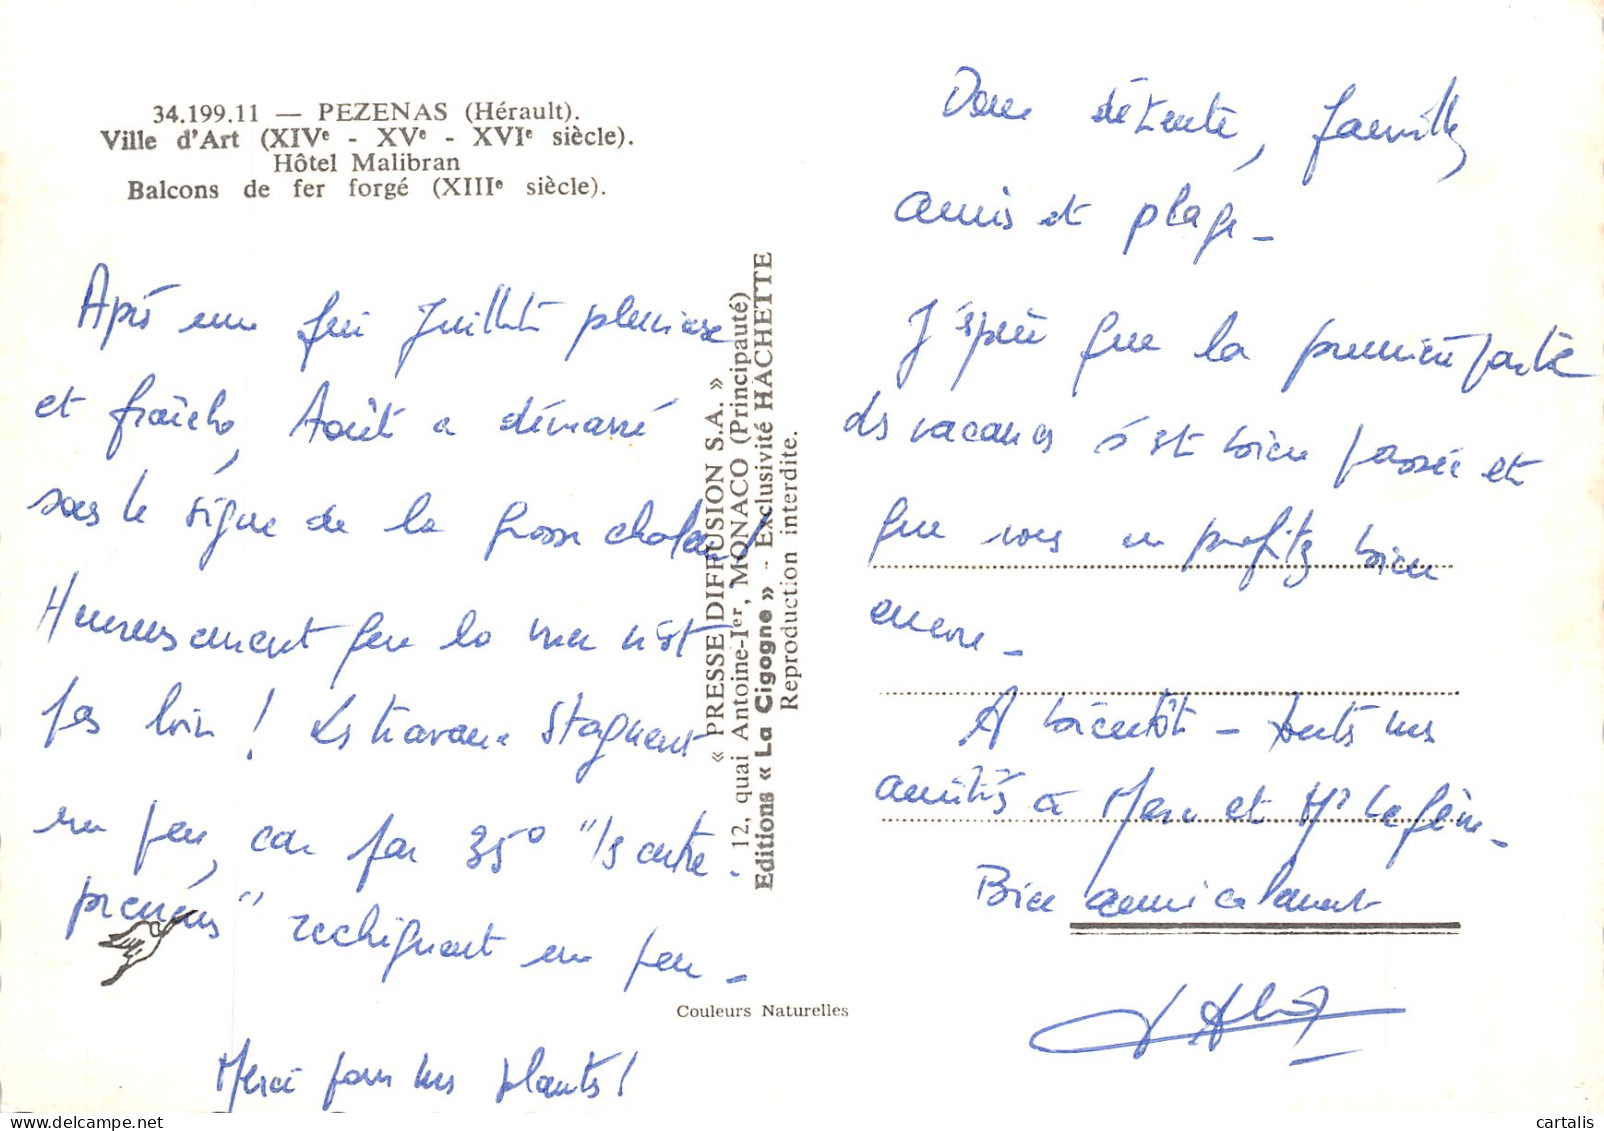 34.199.11 — PEZENAS (Hérault).
Ville d'Art (XIVe - XVe - XVIe siècle).
Hôtel Malibran
Balcons de fer forgé (XIIIe siècle).
Après une fin Juillet pluvieuse
et fraîche, Août a démarré
sous le signe de la grosse chaleur!
Heureusement que la mer n'est
pas loin ! Les travaux stagnent
un peu, car par 35° "les entre-
preneurs" rechignent un peu -
Merci pour les plants !
« PRESSE DIFFUSION S.A. »
12, quai Antoine-Ier, MONACO (Principauté)
Editions « La Cigogne » - Exclusivité HACHETTE
Reproduction interdite.
Couleurs Naturelles
Donc détente, famille
amis et plage -
J'espère que la première partie
des vacances s'est bien passée et
que vous en profitez bien
encore -
A bientôt - toutes mes
amitiés à Marc et Mr
Bien amicalement
cartalis www.delcampe.net